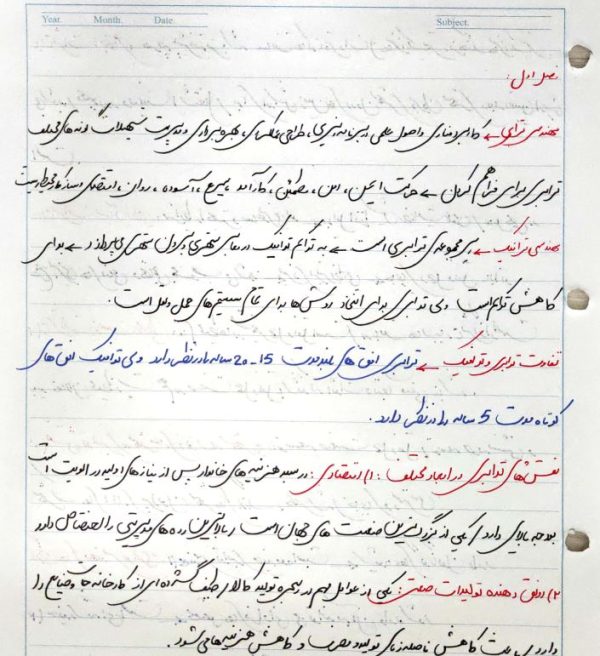 Year. Month. Date. Subject.
فصل اول:
مهندسی ترابری ← کاربرد فناوری و اصول علمی در برنامه‌ریزی، طراحی عملکردی، بهره‌برداری و مدیریت تسهیلات گونه‌های مختلف
ترابری برای فراهم کردن ← حرکت ایمن، امن، مطمئن، کارآمد، سریع، آسوده، روان، اقتصادی و سازگار با محیط زیست
مهندسی ترافیک ← زیرمجموعه‌ی ترابری است ← به تراکم ترافیک در نواحی شهری و برون شهری می‌پردازد ← برای
کاهش تراکم است ولی ترابری برای ایجاد روش‌ها برای تمام سیستم‌های حمل و نقل است.
تفاوت ترابری و ترافیک ← ترابری افق‌های بلندمدت 15-20 ساله را در نظر دارد ولی ترافیک افق‌های
کوتاه مدت 5 ساله را در نظر دارد.
نقش‌های ترابری در ابعاد مختلف: ۱) اقتصادی: در سبد هزینه‌های خانوار پس از نیازهای اولیه در الویت است
بودجه بالایی دارد / یکی از بزرگ‌ترین صنعت‌های جهان است / بالاترین رده‌های مدیریتی را اختصاص دارد
۲) رونق دهنده تولیدات صنعتی: یکی از عوامل مهم در زنجیره تولید کالا / طیف گسترده‌ای از کارخانه‌جات و صنایع را
دارد / باعث کاهش فاصله زمانی تولید و مصرف و کاهش هزینه‌ها می‌شود.